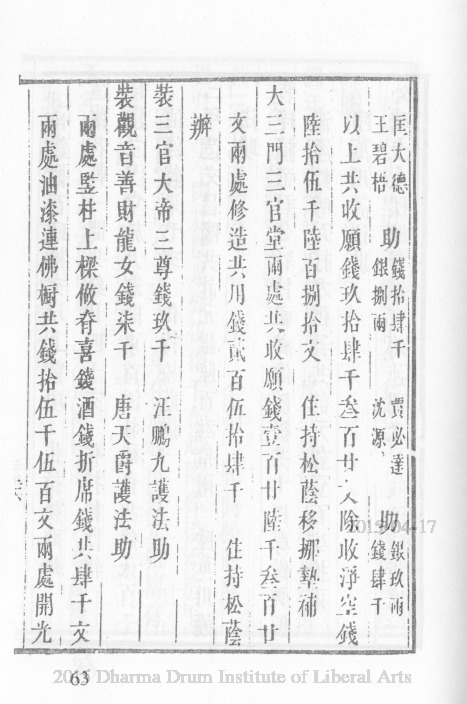 匡大德 助 錢拾肆千 賈必達 助 銀玖兩
王碧梧 銀捌兩 沈源 錢肆千
以上共收願錢玖拾肆千叁百廿 除收淨空錢
陸拾伍千陸百捌拾文 住持松蔭移挪墊補
大三門三官堂兩處共收願錢壹百廿陸千叁百廿
文兩處修造共用錢貳百伍拾肆千 住持松蔭
辦
裝三官大帝三尊錢玖千 汪鵬九護法助
裝觀音善財龍女錢柒千 唐天爵護法助
兩處竪柱上樑攸脊喜錢酒錢折席錢共肆千文
兩處油漆連佛橱共錢拾伍千伍百文兩處開光
63
2019-04-17
Dharma Drum Institute of Liberal Arts